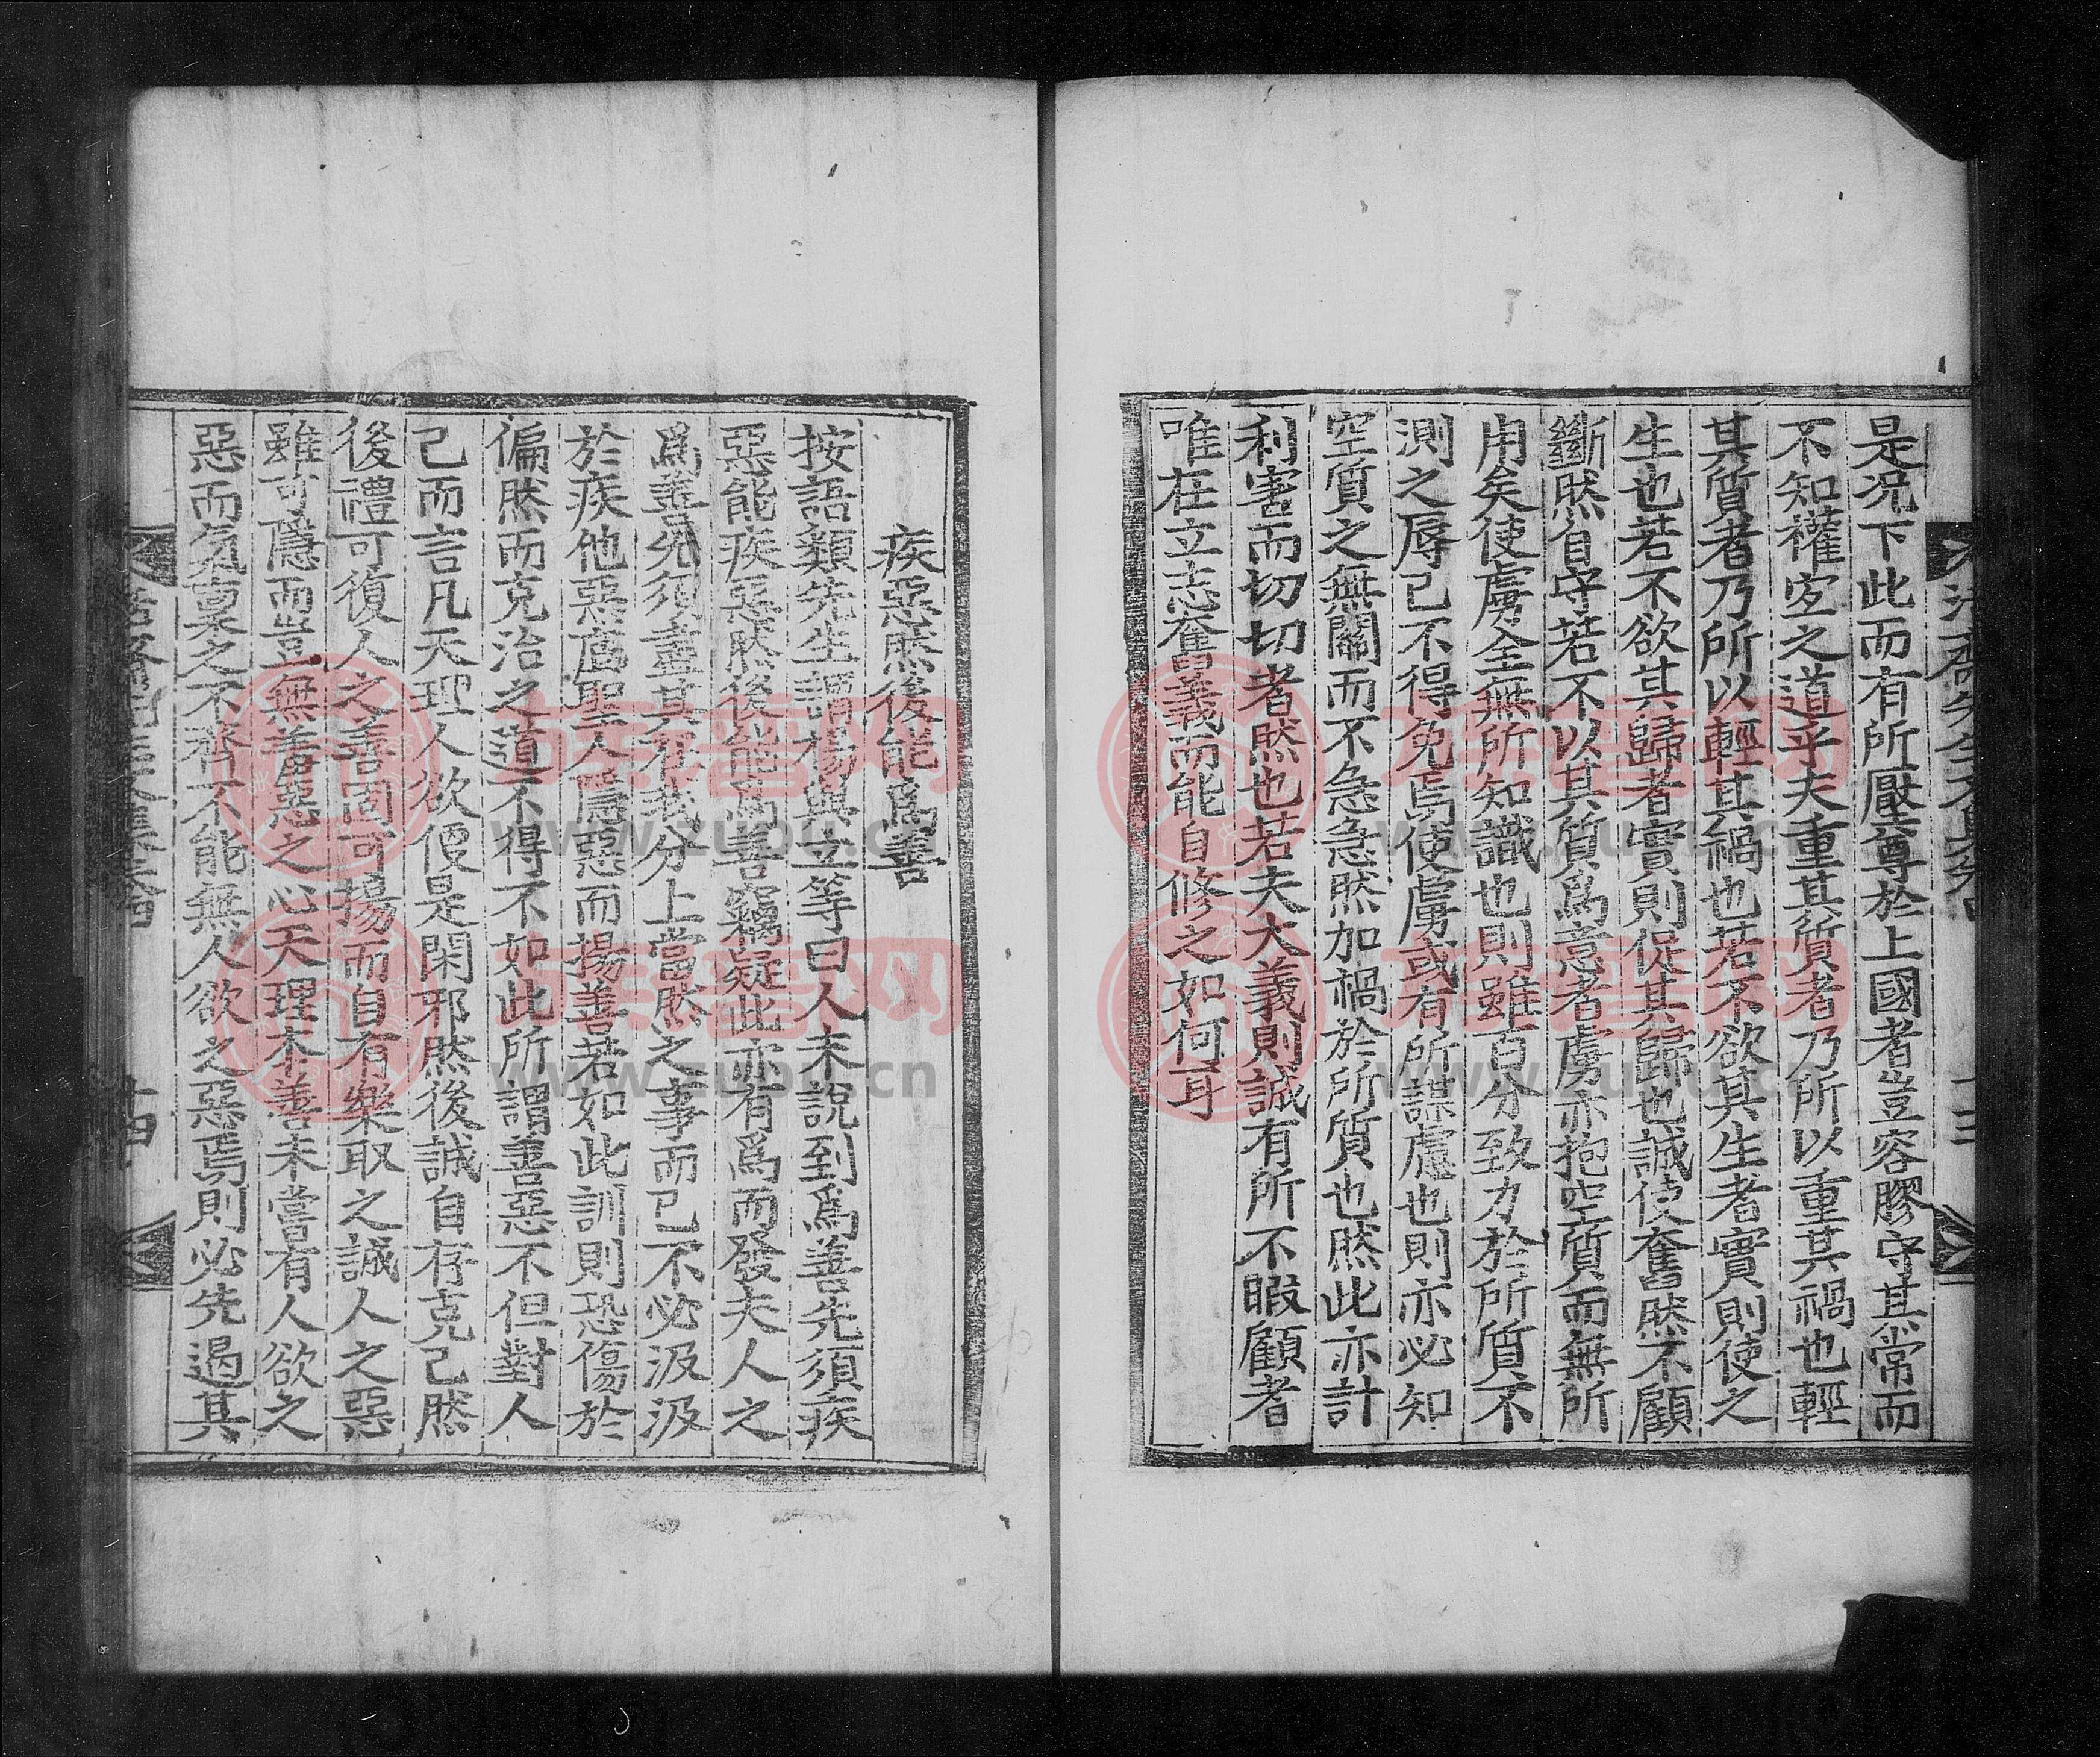 是况下此而有所壓尊於上國者豈容膠守其常而
不知權宜之道乎夫重其質者乃所以重其禍也輕
其質者乃所以輕其禍也若不欲其生者實則使之
生也若不欲其歸者實則促其歸也誠使奮然不顧
斷然自守若不以其質爲意者虜亦抱空質而無所
用矣使虜全無所知識也則雖百分致力於所質不
測之辱已不得免焉使虜或有所謀慮也則亦必知
空質之無關而不急急然加禍於所質也然此亦計
利害而切切者然也若夫大義則誠有所不暇顧者
唯在立志奮義而能自修之如何耳
十三
疾惡然後能爲善
按語類先生謂楊與立等曰人未說到爲善先須疾
惡能疾惡然後能爲善竊疑此亦有爲而發夫人之
爲善只須盡其在我分上當然之事而已不必汲汲
於疾他惡舊聖人隱惡而揚善若如此訓則恐傷於
偏然而克治之道不得不如此所謂善惡不但對人
己而言凡天理人欲便是閑邪然後誠自存克己然
後禮可復人之善固可揚而自有樂取之誠人之惡
雖可隱而豈無善惡之心天理本善未嘗有人欲之
惡而氣稟之不齊不能無人欲之惡焉則必先遏其
十四
www.zupu.cn
www.zupu.cn
www.zupu.cn
www.zupu.cn